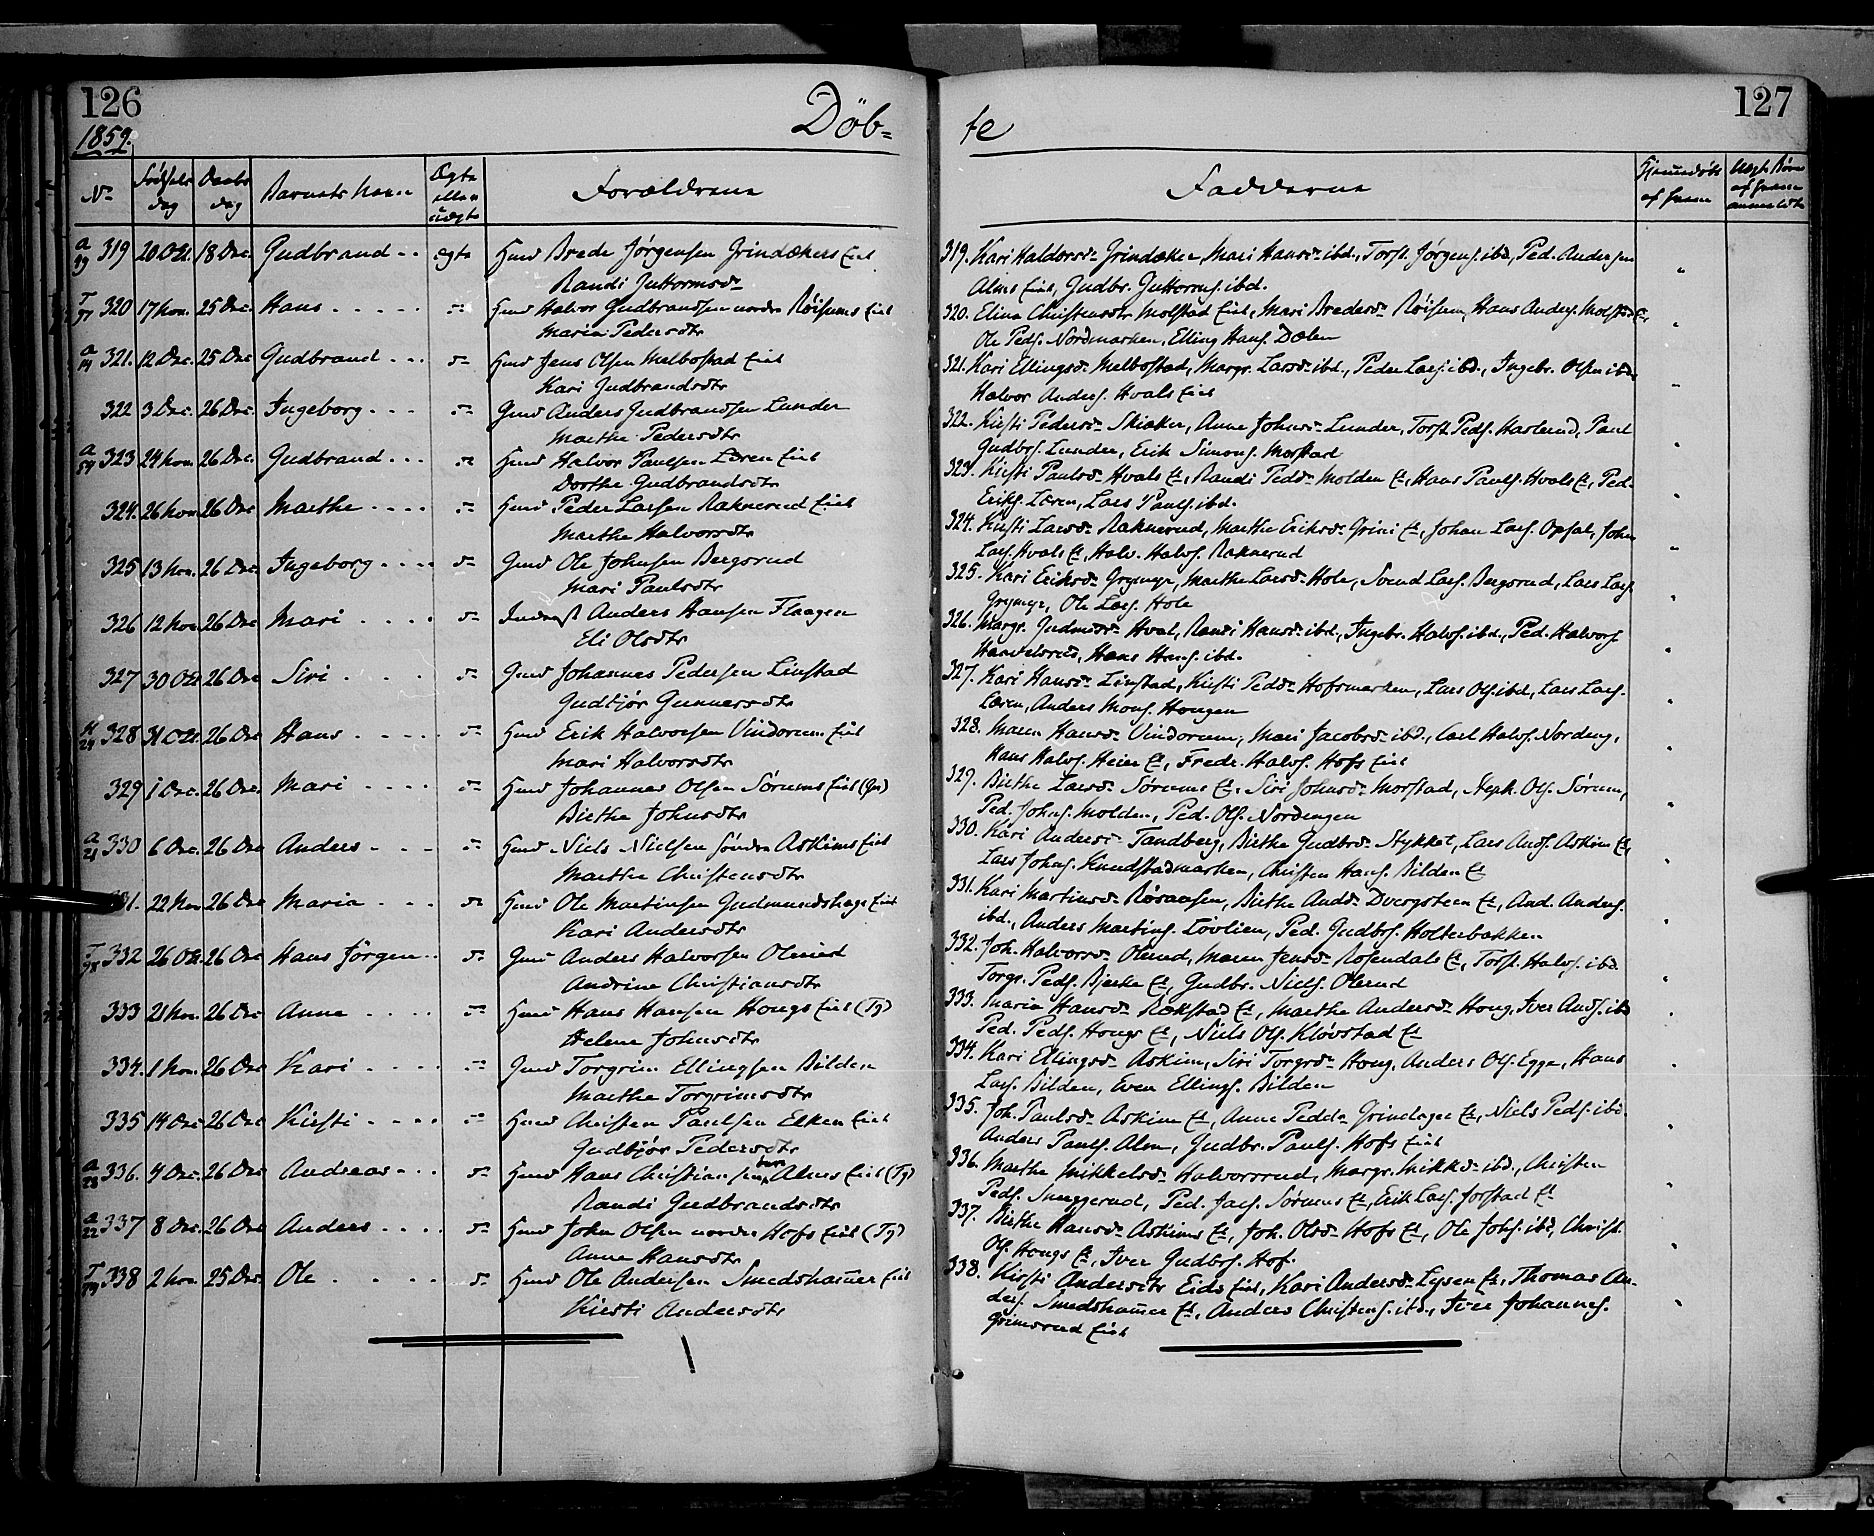 126
Döb=
1859.
No Fødsels dag Daabs dag Barnets Navn Ægte eller uægte Forældrene
319 20 Oct. 18 Dec. Gudbrand ægte Hmd Brede Jørgensen Grindakers Eie
Randi Guttormsd
320 17 Nov. 25 Dec. Hans Hmd Halvor Gudbrandsen nordre Røisums Eie
Maria Pedersdtr
321. 12 Dec. 25 Dec Gudbrand Hmd Jens Olsen Melbostad Eie
Kari Gudbrandsdtr
322 3 Dec. 26 Dec. Ingeborg Gmd Anders Gudbrandsen Lunder
Marthe Pedersdtr
323 24 Nov. 26 Dec. Gudbrand Hmd Halvor Paulsen Læren Eie
Dorthe Gudbrandsdtr
324. 26 Nov 26 Dec Marthe Hmd Peder Larsen Raknerud Eie
Marthe Halvorsdtr
325 13 Nov. 26 Dec. Ingeborg Gmd Ole Johnsen Bergsrud
Mari Paulsdtr
326 12 Nov. 26 Dec Mari Inderst Anders Hansen Flaagen
Eli Olsdtr
327 30 Oct 26 Dec Siri Gmd Johannes Pedersen Linstad
Gudbjør Gunnersdtr
328 31 Oct. 26 Dec Hans Hmd Erik Halvorsen Vindorum Eie
Mari Halvorsdtr
329 1 Dec. 26 Dec. Mari Hmd Johannes Olsen Sørums Eie (Gr)
Birthe Johnsdtr
330 6 Dec. 26 Dec Anders Hmd Niels Nielsen søndre Askims Eie
Marthe Christensdtr
331. 22 Nov 26 Dec Maria Hmd Ole Martinsen Gudmundshage Eie
Kari Andersdtr
332 26 Oct. 26 Dec Hans Jørgen Gmd Anders Halvorsen Olerud
Andrine Christiansdtr
333 21 Nov. 26 Dec Anne Hmd Hans Hansen Hougs Eie (Tg)
Helene Johnsdtr
334. 1 Nov. 26 Dec Kari Gmd Torgrim Ellingsen Bilden
Marthe Torgrimsdtr
335 14 Dec 26 Dec Kirsti Hmd Christen Paulsen Elken Eie
Gudbjør Pedersdtr
336. 4 Dec. 26 Dec Andreas Hmd Hans Christiansen Alms Eie (Tg)
Randi Gudbrandsdtr
337 8 Dec. 26 Dec Anders Hmd John Olsen nordre Hofs Eie (Tg)
Anne Hansdtr
338 2 Nov. 25 Dec. Ole Hmd Ole Andersen Smedshammer Eie
Kirsti Andersdtr
te
127
Fadderne
Hjemmedøbt af hvem
319. Kari Haldorsd Grindaker, Mari Hansd ibd., Torst. Jørgens. ibd., Ped. Andersen
Alms Eie, Gudbr. Guttorms. ibd.
320. Elina Christensdtr Molstad Eie, Mari Bredesd Røisum, Hans Anders. Molstad E.,
Ole Peds. Nordmarken, Elling Hans. Dælen
321. Kari Ellingsd Melbostad, Margr. Larsd ibd., Peder Lars. ibd., Ingebr. Olsen ibd.
Halvor Anders. Hvals Eie
322. Kirsti Pedersd Skiaker, Anne Johnsd Lunder, Torst. Peds. Haslerud, Paul
Gudbrs. Lunder, Erik Simons. Morstad
323. Kirsti Paulsd Hvals E, Randi Pedsd Molden E, Hans Pauls. Hvals E, Ped.
Eriks. Læren, Lars Pauls. ibd.
324. Kirsti Larsd Raknerud, Marthe Eriksd Grini E, Johan Lars. Opsal, John
Lars. Hvals E, Halv. Halvs. Raknerud
325. Kari Eriksd Grymyr, Marthe Larsd Hole, Svend Lars. Bergsrud, Lars Lars.
Grymyr, Ole Lars. Hole
326. Margr. Gudmsd Hval, Randi Hansd ibd., Ingebr. Halvs. ibd., Ped. Halvors.
Hans Hans. ibd.
327. Kari Hansd Linstad, Kirsti Pedsd Hofsmarken, Lars Ols. ibd., Lars Lars.
Læren, Anders Mons. Hougen
328. Maren Hansd Vindorum, Mari Jacobsd ibd., Carl Halvs. Nordeng,
Hans Halvs. Heier E, Fredr. Halvs. Hofs Eie
329. Birthe Larsd Sørums E, Siri Johnsd Morstad, Steph. Ols. Sørum,
Ped. Johns. Molden, Ped. Ols. Nordengen
330. Kari Andersd Tandberg, Birthe Gudbrd Stykket, Lars Ands. Askim E,
Lars Johns. Knudstadmarken, Christen Hans. Bilden E
331. Kari Martinsd Røsaasen, Birthe Andsd Dvergsteen E, And. Anders.
ibd., Anders Martins. Løvlien, Ped. Gudbrs. Holterbakken
332. Joh. Halvorsd Olerud, Maren Jensd Rosendals E, Torst. Halvs. ibd.
Torgr. Peds. Bjerke E, Gudbr. Niels. Olerud
333. Maria Hansd Rækstad E, Marthe Andersd Houg, Iver Ands. ibd
Ped. Peds. Hougs E, Niels Ols. Kløvstad E
334. Kari Ellingsd Askim, Siri Torgrsd Houg, Anders Ols. Egge, Hans
Lars. Bilden, Even Ellings. Bilden
335. Joh. Paulsd Askim E, Anne Pedsd Grindager E, Niels Peds. ibd.
Anders Pauls. Alm, Gudbr. Pauls. Hofs Eie
336. Marthe Mikkelsd Halvorsrud, Margr. Mikksd ibd., Christen
Peds. Smeggerud, Ped. Jacs. Sørums E, Erik Lars. Jorstad E
337. Birthe Hansd Askims E, Joh. Olsd Hofs E, Ole Johs. ibd, Christ.
Ols. Hougs E, Iver Gudbrs. Hof.
338. Kirsti Andersdtr Eids Eie, Kari Andersd Lysen E, Thomas An-
ders. Smedshammer E, Anders Christens. ibd., Iver Johannes.
Grimsrud Eie